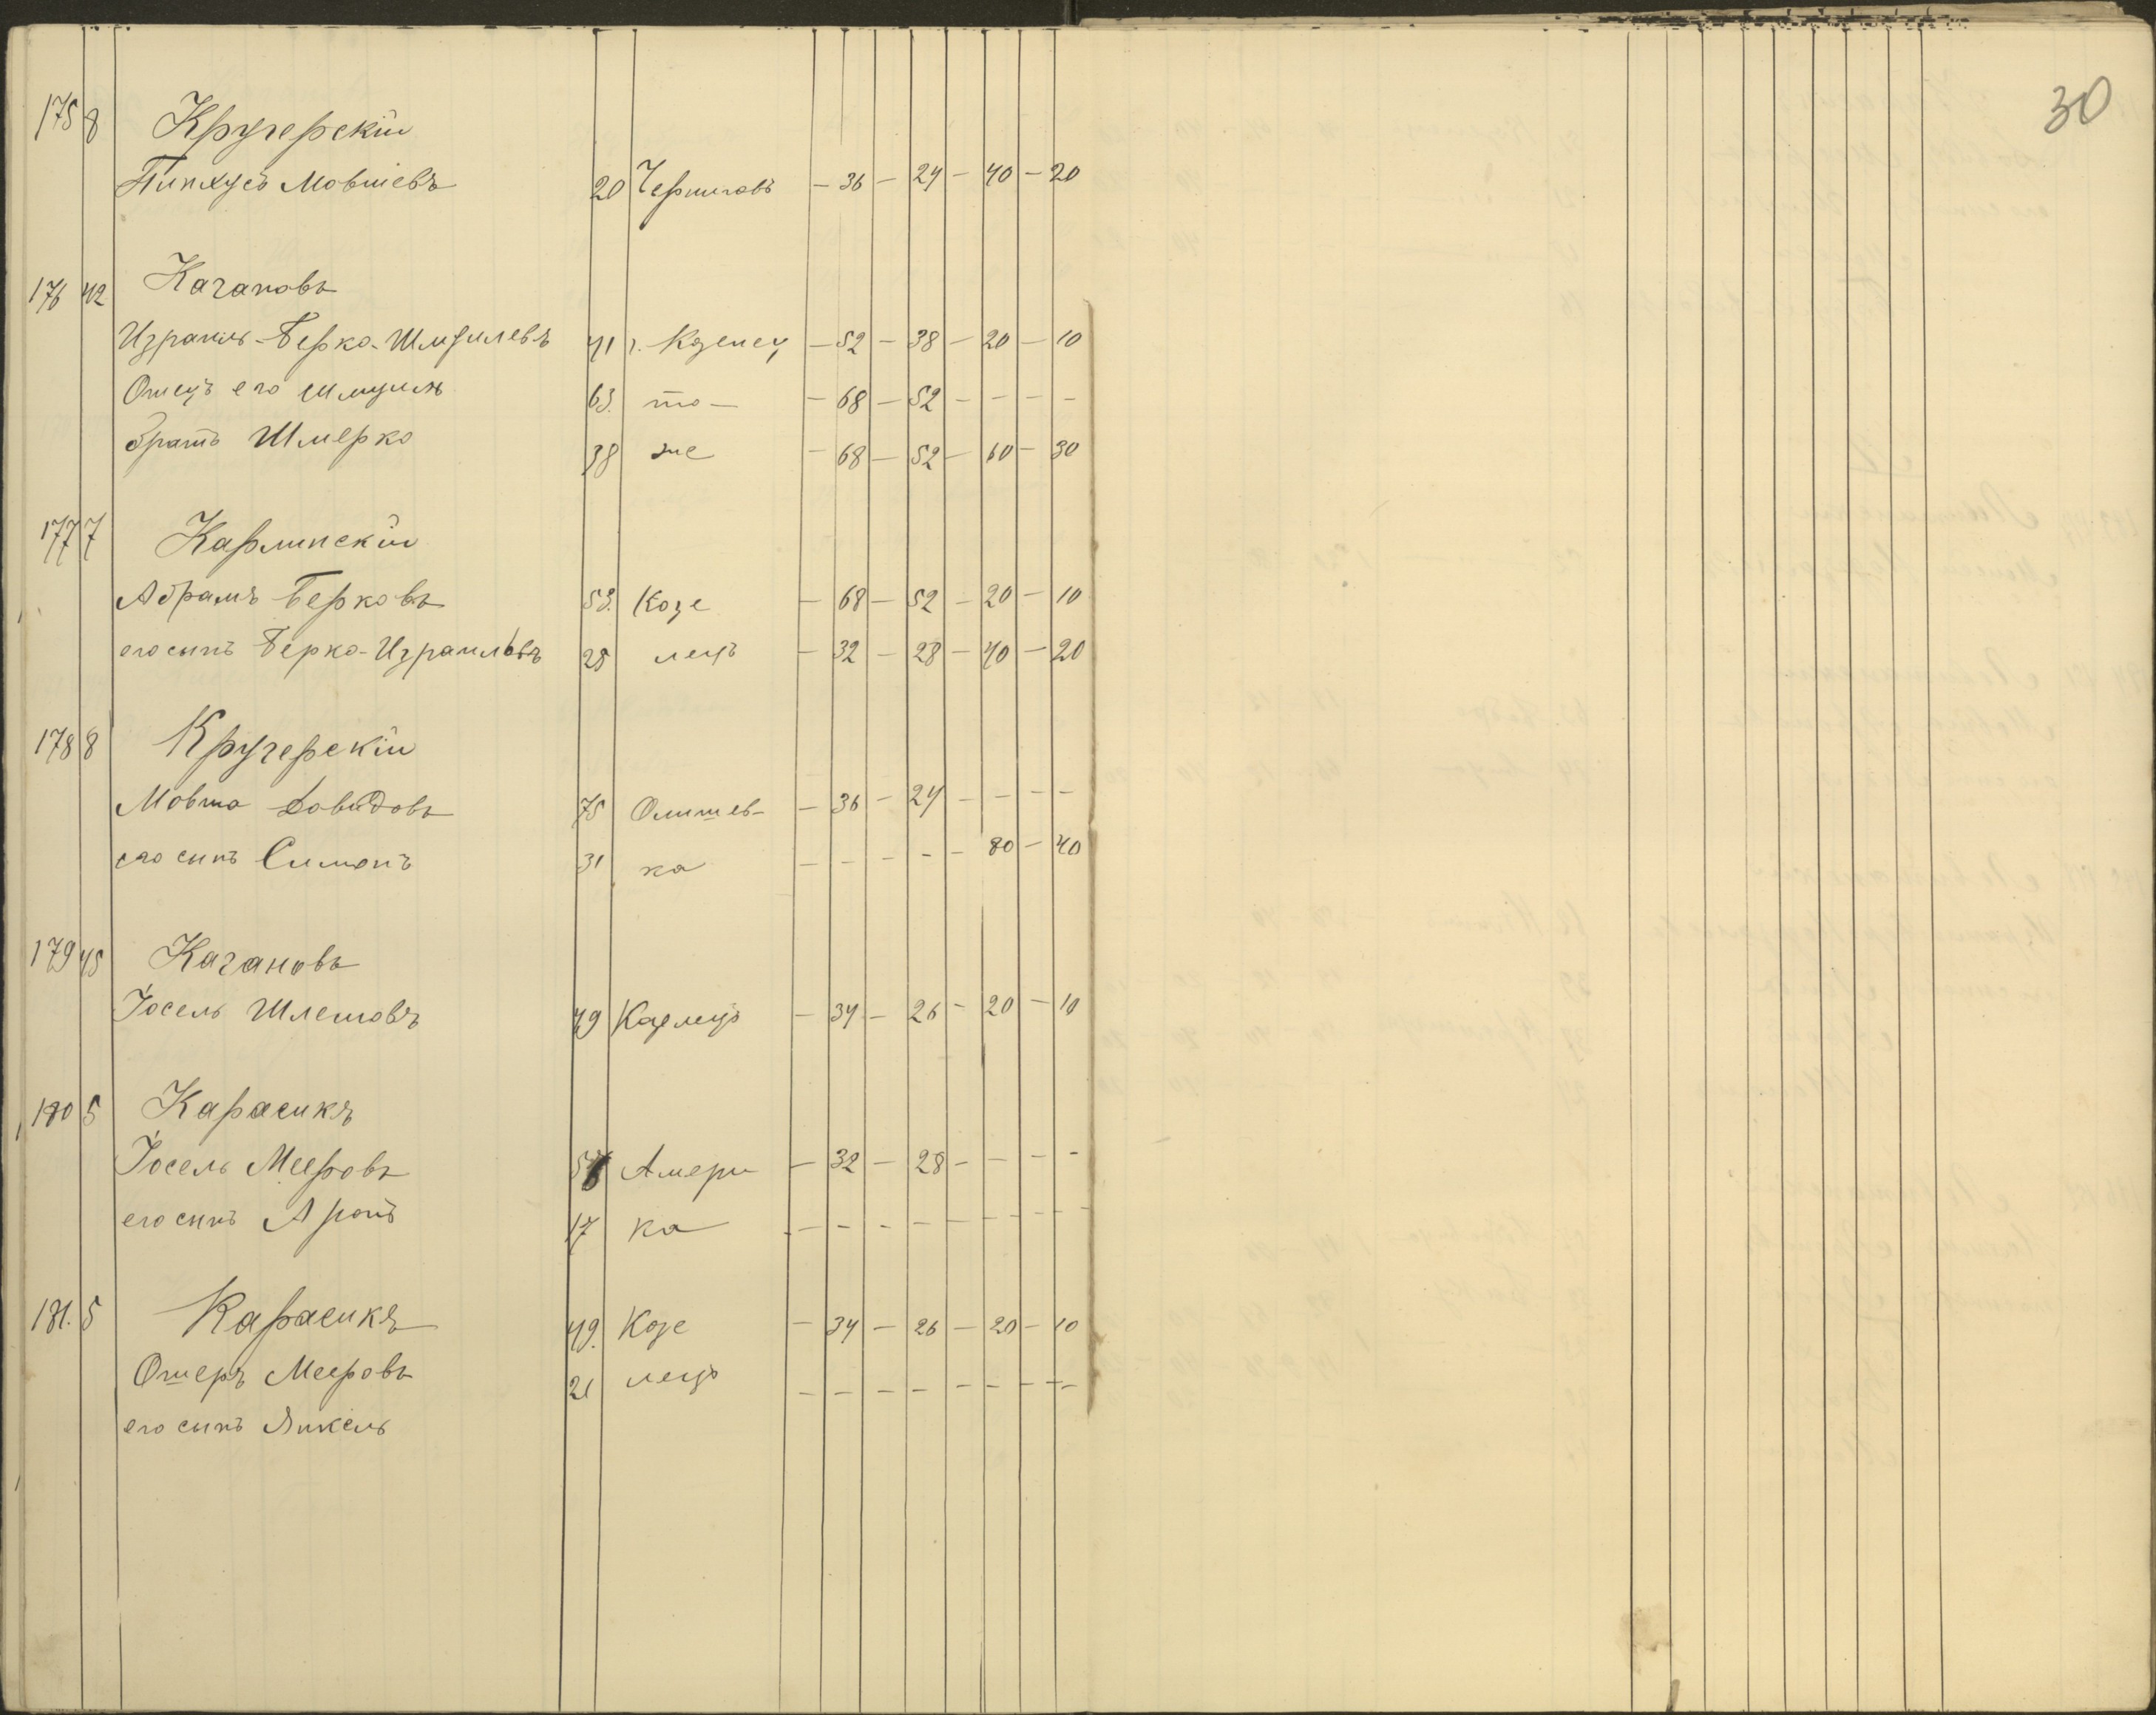 30
175 8 Кругерскій
Пинхусъ Мовшевъ 20 Черниговъ — 36 — 24 — 40 — 20
176 42 Кагановъ
Израиль-Берко-Шмуилевъ 41 г. Козелец — 52 — 38 — 20 — 10
Отецъ его Шмуилъ 63. то — — 68 — 52 — — — —
братъ Шмерко 38 же — 68 — 52 — 60 — 30
177 7 Карлинскій
Абрамъ Берковъ 53. Козе — 68 — 52 — 20 — 10
его сынъ Берко-Израиловъ 25 лецъ — 32 — 28 — 40 — 20
178 8 Кругерскій
Мовша Довидовъ 75 Олишев- — 36 — 24 — — — —
его сынъ Симонъ 31 ка — — — — — 80 — 40
179 45 Кагановъ
Іосель Шлемовъ 49 Козлецъ — 34 — 26 — 20 — 10
180 5 Карасикъ
Іосель Мееровъ Амери — 32 — 28 — — — —
его сынъ Аронъ 17 ка — — — — — — — —
181. 5 Карасикъ 49. Козе — 34 — 26 — 20 — 10
Ошеръ Мееровъ 21 лецъ — — — — — — — —
его сынъ Янкель